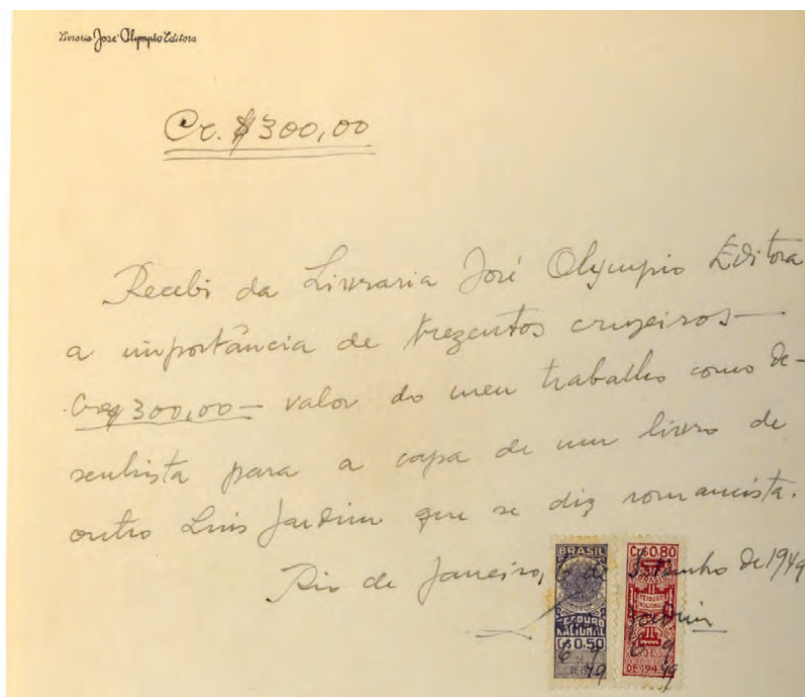 Livraria José Olympio Editora
Cr.$300,00
Recebi da Livraria José Olympio Editora
a importância de trezentos cruzeiros—
Cr$ 300,00— valor do meu trabalho como de-
senhista para a capa de um livro de
outro Luís Jardim que se diz romancista.
Rio de Janeiro, 6 de Setembro de 1949
BRASIL
TESOURO
NACIONAL
Cr$ 0,50
6 9
49
Cr$ 0,80
TESOURO
NACIONAL
Jardim
6 9
DE 194
49